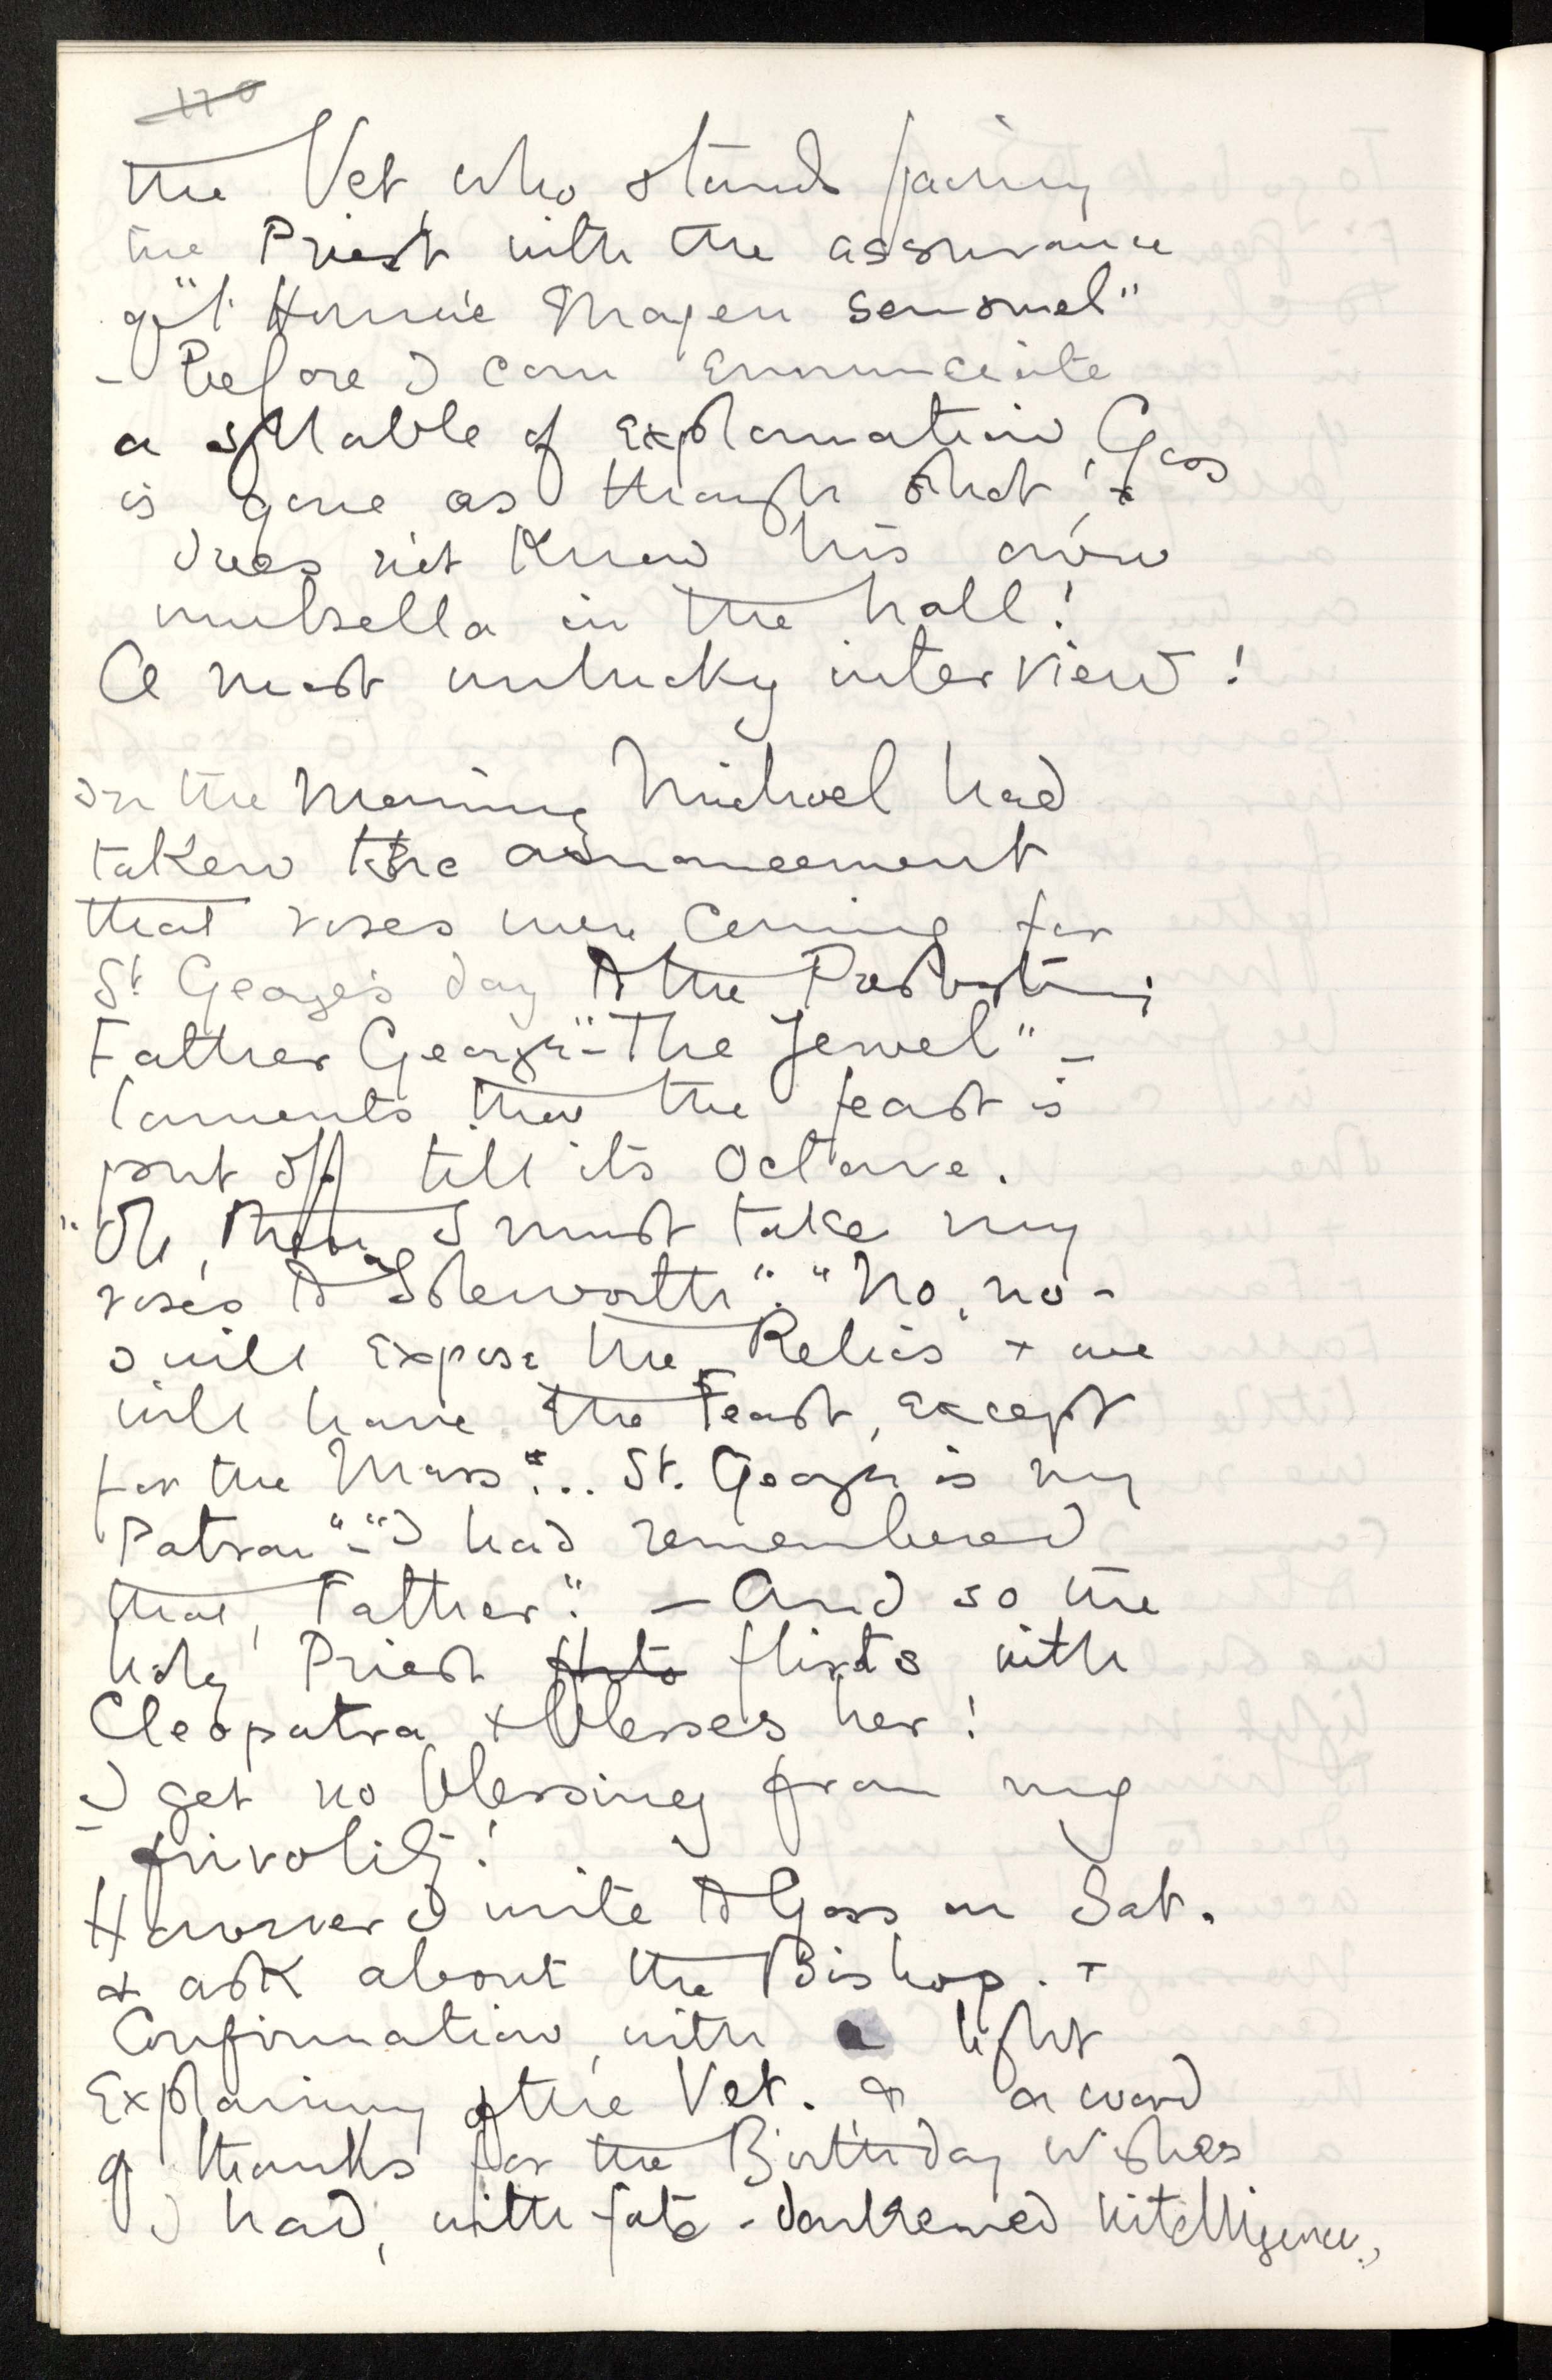 the Vet, who stands facing
the Priest with the assurance
of "l'Homme Moyen sensuel"
– Before I can ennunciate
a syllable of explanation, Goss
is gone as though shot, +
does not know his own
umbrella in the hall!
A most unlucky interview!
In the Morning Michael had
taken the announcement
that roses were coming for
St George's day to the Presbytery;
Father George – "The Jewel" –
laments that the feast is
put off till its Octave.
"Oh, then I must take my
roses to Isleworth". "No, no –
I will expose the Relics + we
will have the Feast, except
for the Mass"... St. George is my
Patron" – "I had remembered
that, Father". – And so the
holy Priest flirts with
Cleopatra + blesses her!
I get no blessing from my
frivolity!
However I write to Goss on Sat.
+ ask about the Bishop. +
Confirmation, with a light
Explaining of the Vet. & a word
of thanks for the Birthday Wishes
I had, with fate-darkened intelligence,